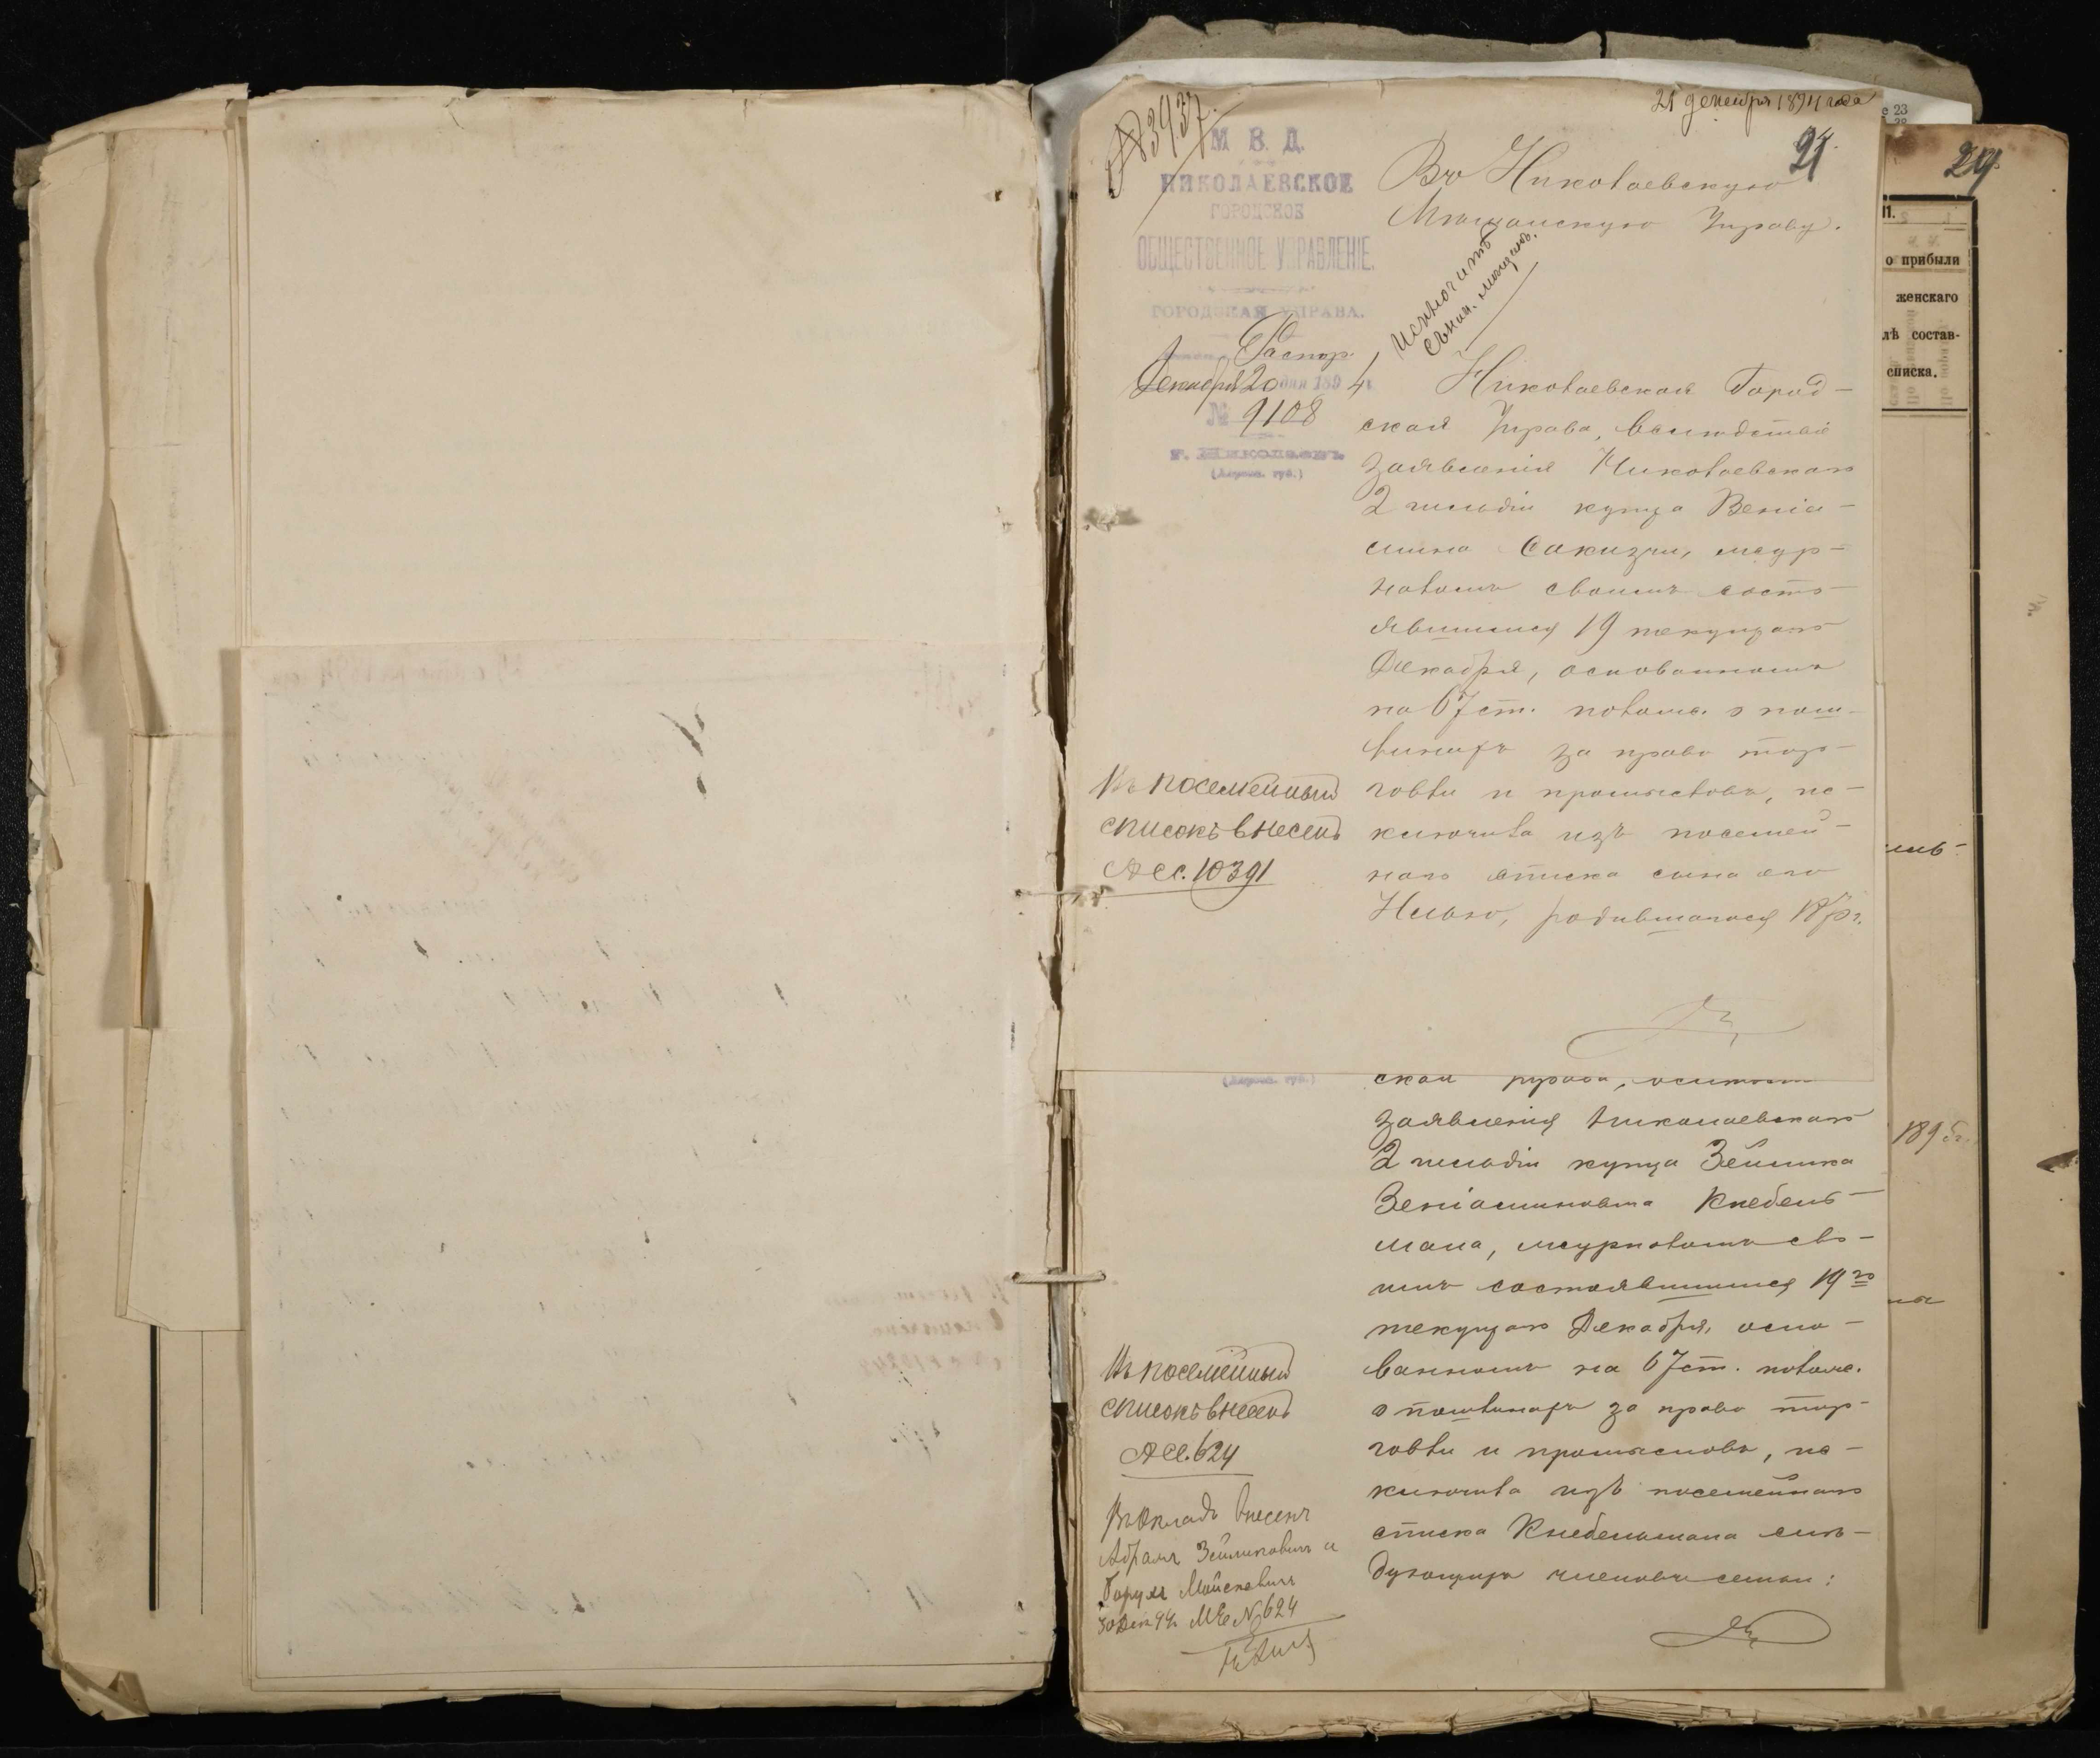 21 декабря 1894 года
№ 3937.
21.
М. В. Д.
НИКОЛАЕВСКОЕ
ГОРОДСКОЕ
ОБЩЕСТВЕННОЕ УПРАВЛЕНІЕ.
ГОРОДСКАЯ УПРАВА.
Распор.
Декабря 20 дня 1894 г.
№ 9108
г. Николаевъ
(Херсон. губ.)
Въ Николаевскую
Мѣщанскую Управу.
Исключить
Николаевская Город-
ская Управа, вслѣдствіе
заявленія Николаевскаго
2 гильдіи купца Веніа-
мина Сакизчи, журна-
ломъ своимъ состо-
явшимся 19 текущаго
Декабря, основанномъ
на 67 ст. полож. о пош-
линахъ за право тор-
говли и промысловъ, ис-
ключила изъ посемей-
наго списка сына его
Илью, родившагося
Въ посемейный
списокъ внесенъ
М.С. 10391
(Херсон. губ.)
ская Управа, вслѣдствіе
заявленія Николаевскаго
2 гильдіи купца Зейлика
Веніаминовича Кнебель-
мана, журналомъ сво-
имъ состоявшимся 19го
текущаго Декабря, осно-
ванномъ на 67 ст. полож.
о пошлинахъ за право тор-
говли и промысловъ, ис-
ключила изъ посемейнаго
списка Кнебельмана слѣ-
дующихъ членовъ семьи:
Въ посемейный
списокъ внесенъ
М.С. 624
Въ окладъ внесены
Абрамъ Зейликовичъ и
Борухъ Мойсеевичъ
30 Дек 94 г. № 624
29.
о прибыли
женскаго
лѣ состав-
списка.
189